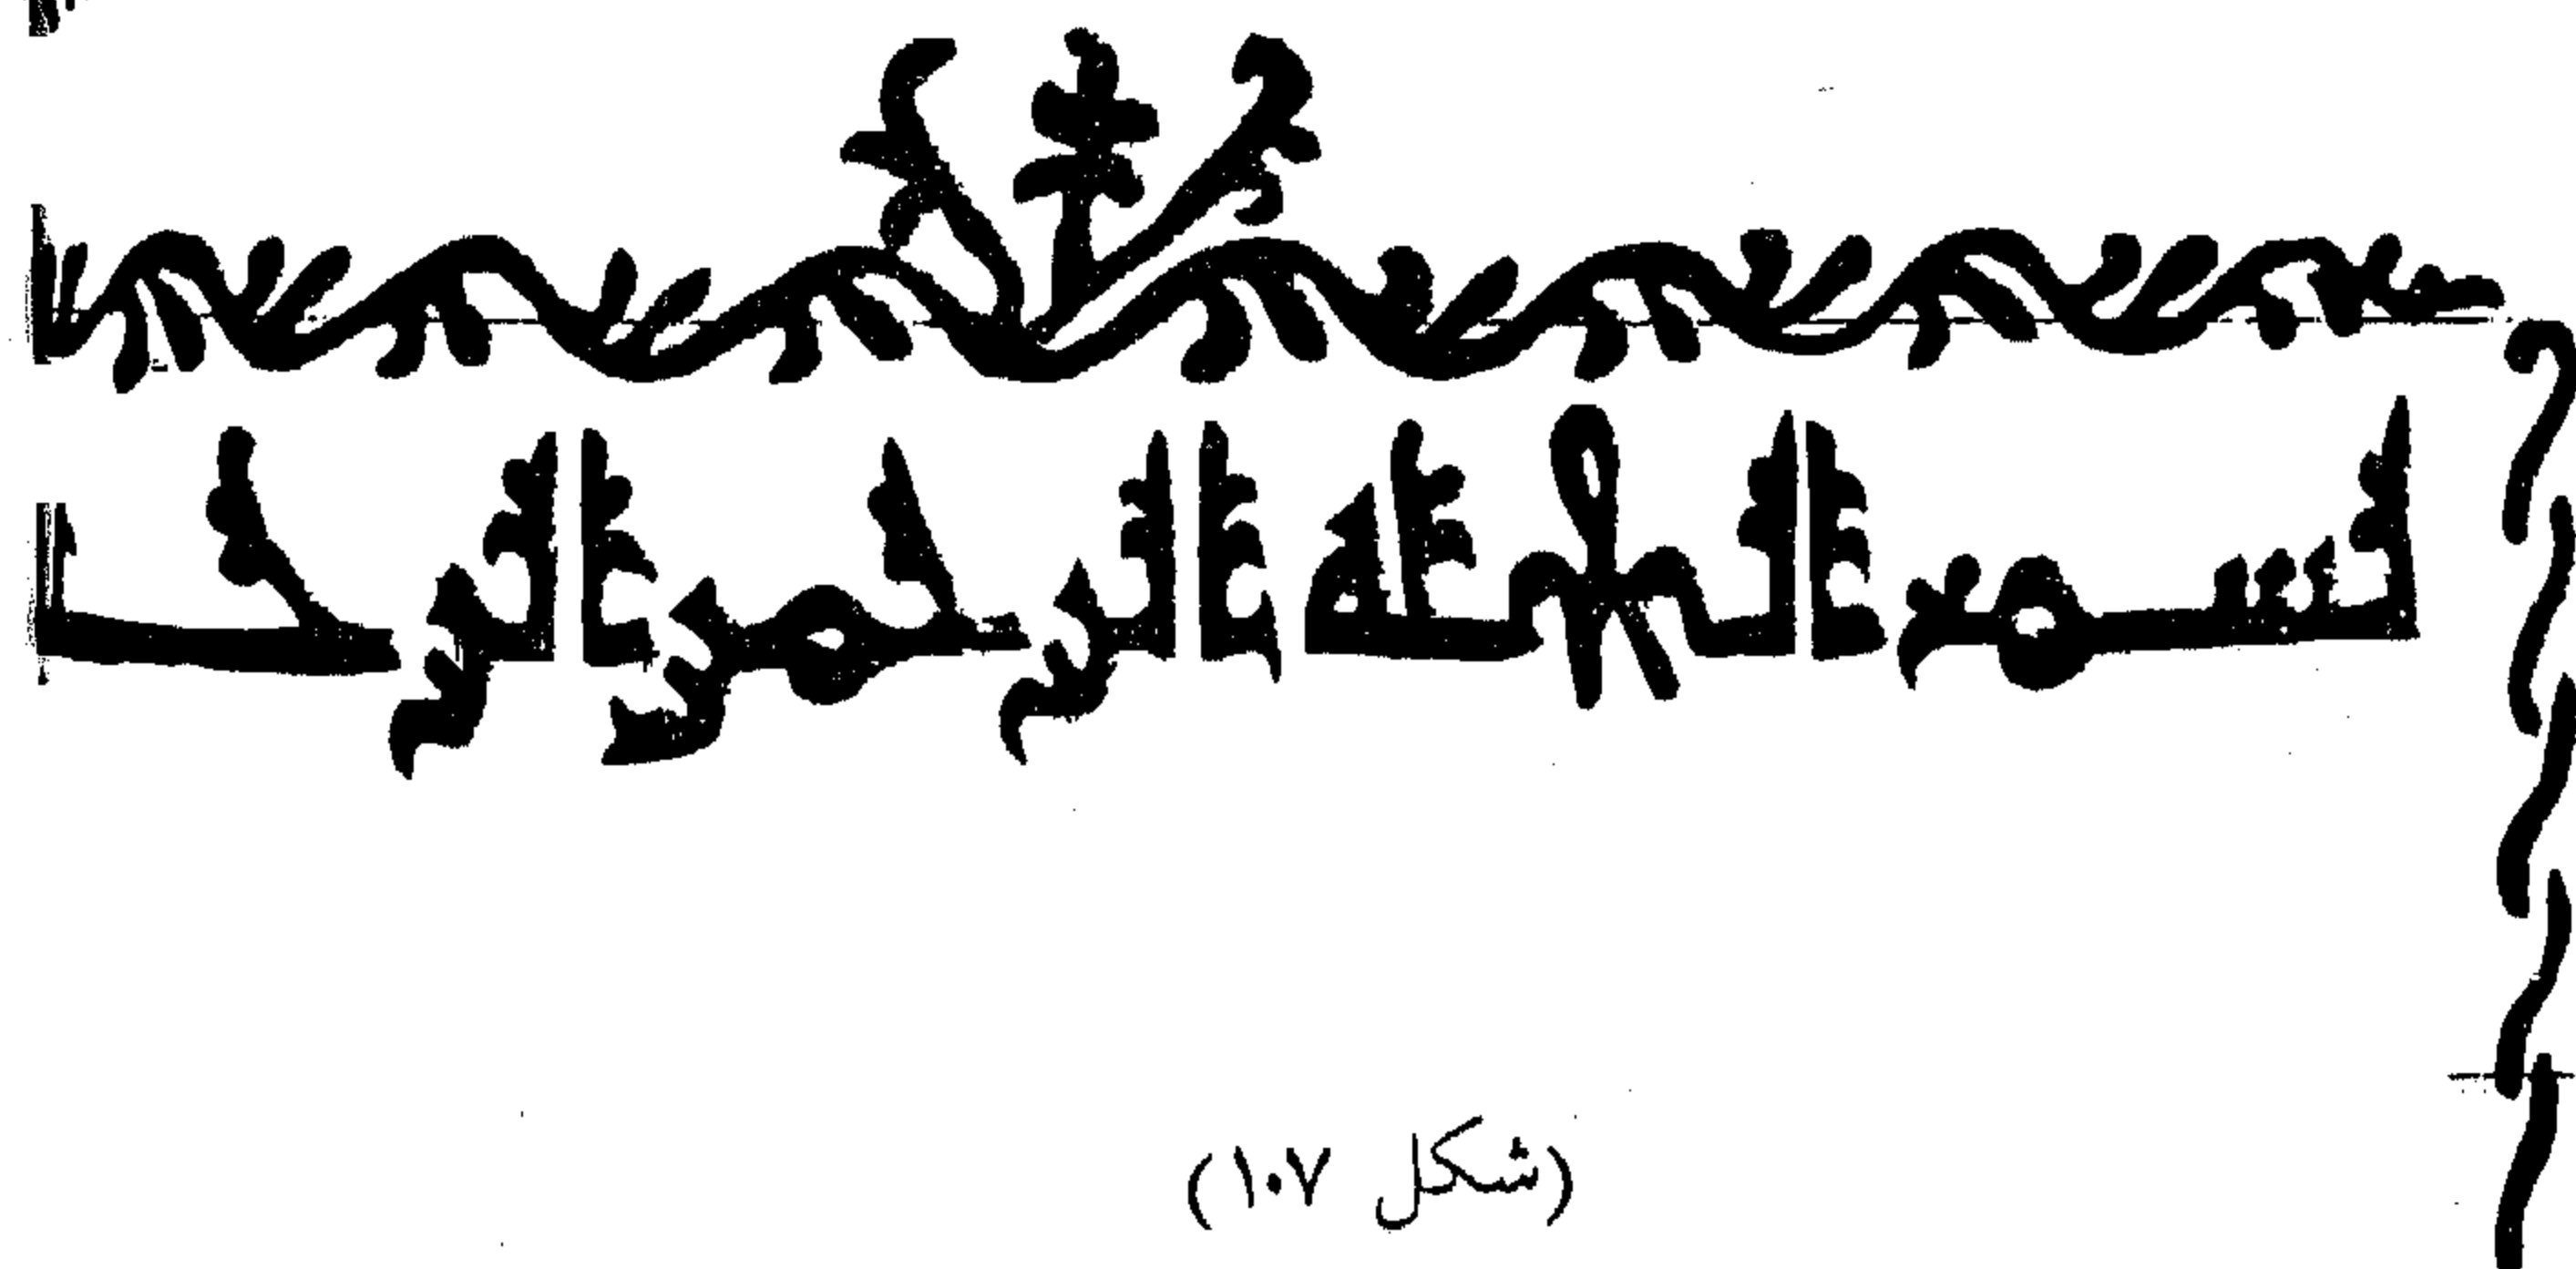 بسم الله الرحمن الرحـ
(شكل ١٠٧)